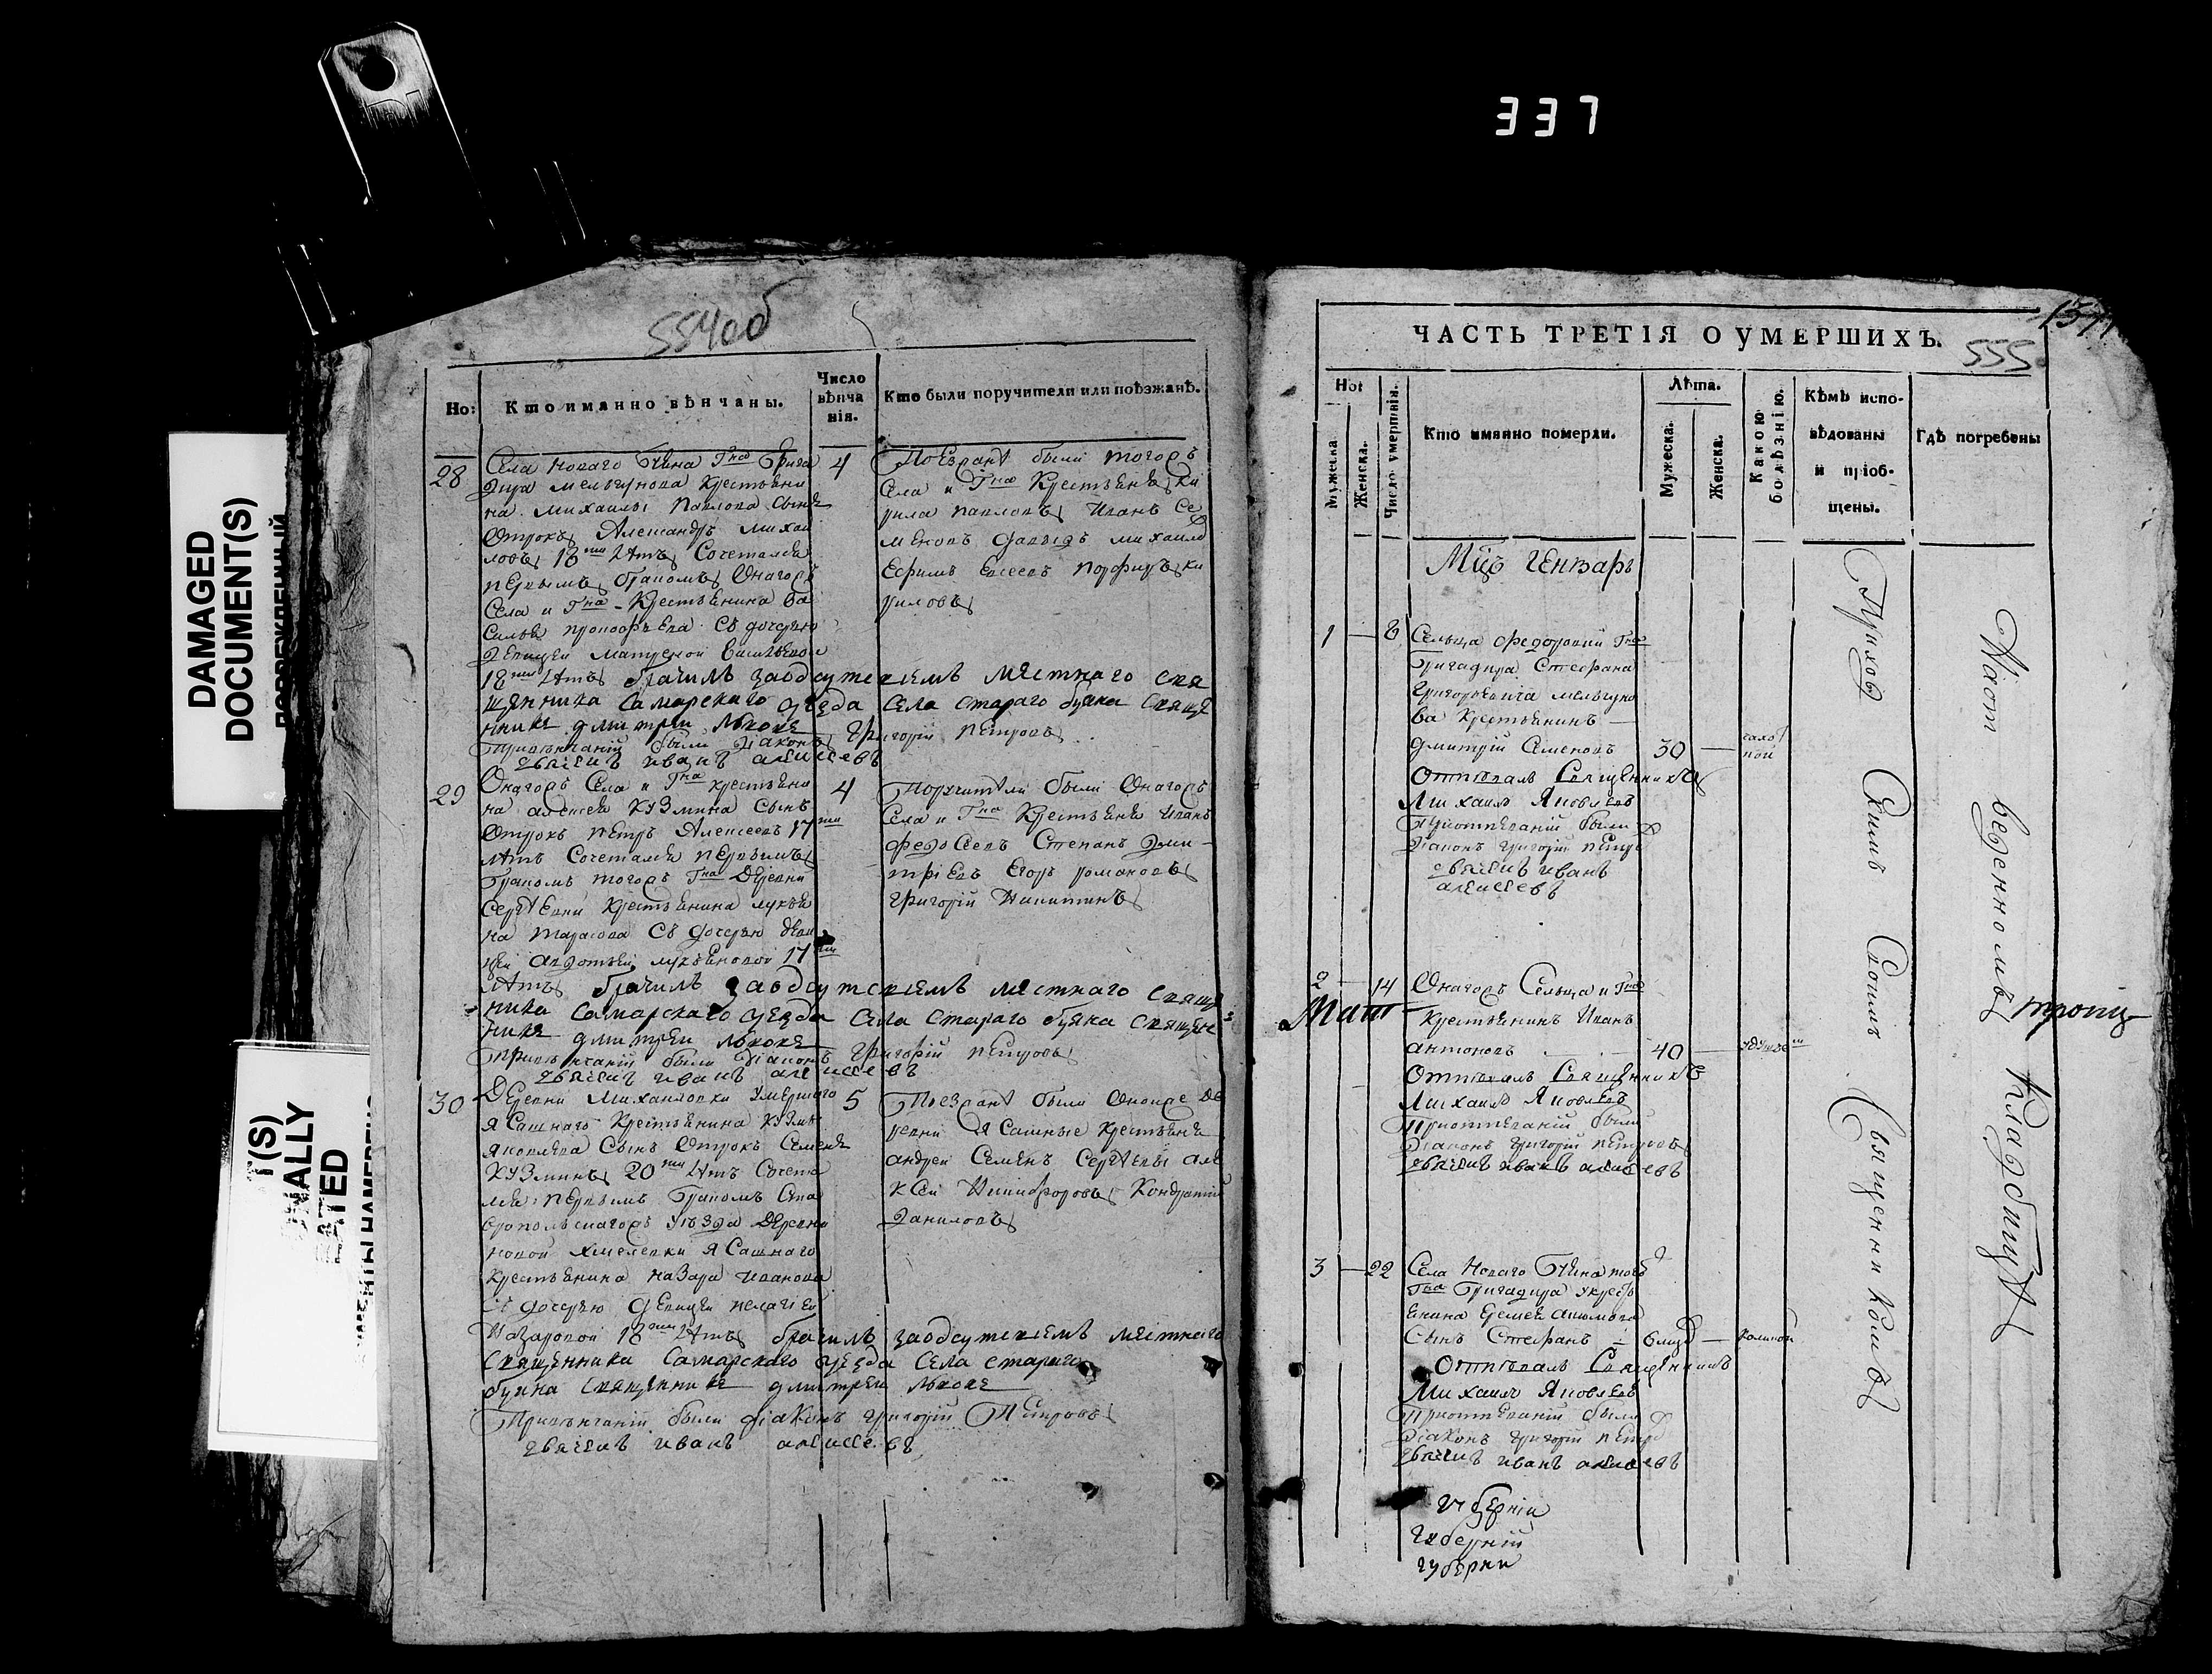 337
DAMAGED
DOCUMENT(S)
554об
Но:
Кто имянно вѣнчаны.
Число
вѣнча
нія.
Кто были поручители или поѣзжанѣ.
28
Села Новаго Буяна Гна Брига
дира Мельгунова крестьяни
на Михаилы Павлова сынъ
отрокъ Александръ Михаи
ловъ 18 ти лѣтъ сочетался
первымъ бракомъ онагожъ
села и Гна крестьянина Ва
силья Прокофьева съ дочерью
девицей Матреной Васильевой
18 ти лѣтъ бр​ачилъ за одсутствіемъ местнаго свя
щенника Самарскаго уезда села Стараго Буяна священ
никъ Дмитреи Львовъ
При венчаніи были діаконъ Григорій Петровъ
Иванъ Алексеевъ
4
Поезжанѣ были тогожъ
села и Гна крестьянѣ Ки
рила Павловъ Иванъ Се
меновъ Давыдъ Михаило
Ефимъ Евсеевъ Порфиръ Ки
риловъ
29
Онагожъ села и Гна крестьяни
на Алексея Кузмина сынъ
отрокъ Петръ Алексеевъ 17 ти
лѣтъ сочетался первымъ
бракомъ тогожъ Гна деревни
Сергѣевки крестьянина Лукья
на Тарасова съ дочерью деви
цей Авдотьей Лукьяновой 17 ти
лѣтъ брачилъ за одсутствіемъ местнаго священ
ника Самарскаго уезда села Стараго Буяна священ
никъ Дмитреи Львовъ
При венчаніи были діаконъ Григорій Петровъ
Иванъ Алексеевъ
4
Поручители были онагожъ
села и Гна крестьянѣ Иванъ
Федосеевъ Степанъ Дми
тріевъ Егоръ Романовъ
Григорій Никитинъ
30
Деревни Михаиловки умершаго
ясашнаго крестьянина Кузмы
Яковлева сынъ отрокъ Семенъ
Кузминъ 20 ти лѣтъ сочета
лся первымъ бракомъ Ста
вропольскагожъ уѣзда деревни
Новой Хмелевки ясашнаго
крестьянина Назара Иванова
съ дочерью девицей Пелагеей
Назаровой 18 ти лѣтъ брачилъ за одсутствіемъ местнаго
священника Самарскаго уезда села Стараго
Буяна священникъ Дмитреи Львовъ
При венчаніи были діаконъ Григорій Петровъ
Иванъ Алексеевъ
5
Поезжанѣ были оное же де
ревни ясашные крестьянѣ
Андреи Семенъ Сергѣевы Але
ксеи Никифоровъ Кондратій
Даниловъ
ЧАСТЬ ТРЕТІЯ О УМЕРШИХЪ.
555
Но:
Мужеска.
Женска.
Число умертвія.
Кто имянно померли.
Лѣта.
Мужеска.
Женска.
Какою болѣзнію.
Кѣмъ испо-
вѣдованы
и пріоб-
щены.
Гдѣ погребены
Мцъ Генварь
1
8
Сельца Федоровки Гна
Бригадира Стефана
Григорьевича Мельгуно
ва крестьянинъ
Дмитрій Семеновъ
30
чахо
ткой
Отпѣвалъ священникъ
Михаилъ Яковлевъ
При отпеваніи были
діаконъ Григорій Петро
Иванъ
Алексеевъ
2
14
Онагожъ сельца и Гна
крестьянинъ Иванъ
Антоновъ
40
Отпѣвалъ священникъ
Михаилъ Яковлевъ
При отпеваніи были
діаконъ Григорій Петровъ
Иванъ Алексеевъ
3
22
Села Новаго Буяна тогожъ
Гна Бригадира крестъ
янина
сынъ Стефанъ
Отпѣвалъ священникъ
Михаилъ Яковлевъ
При отпеваніи были
діаконъ Григорій Петро
Иванъ Алексеевъ
губерніи
губерніи
губерни
Прихо
Симъ
Священникомъ
На от
веденномъ
Кладбищѣ